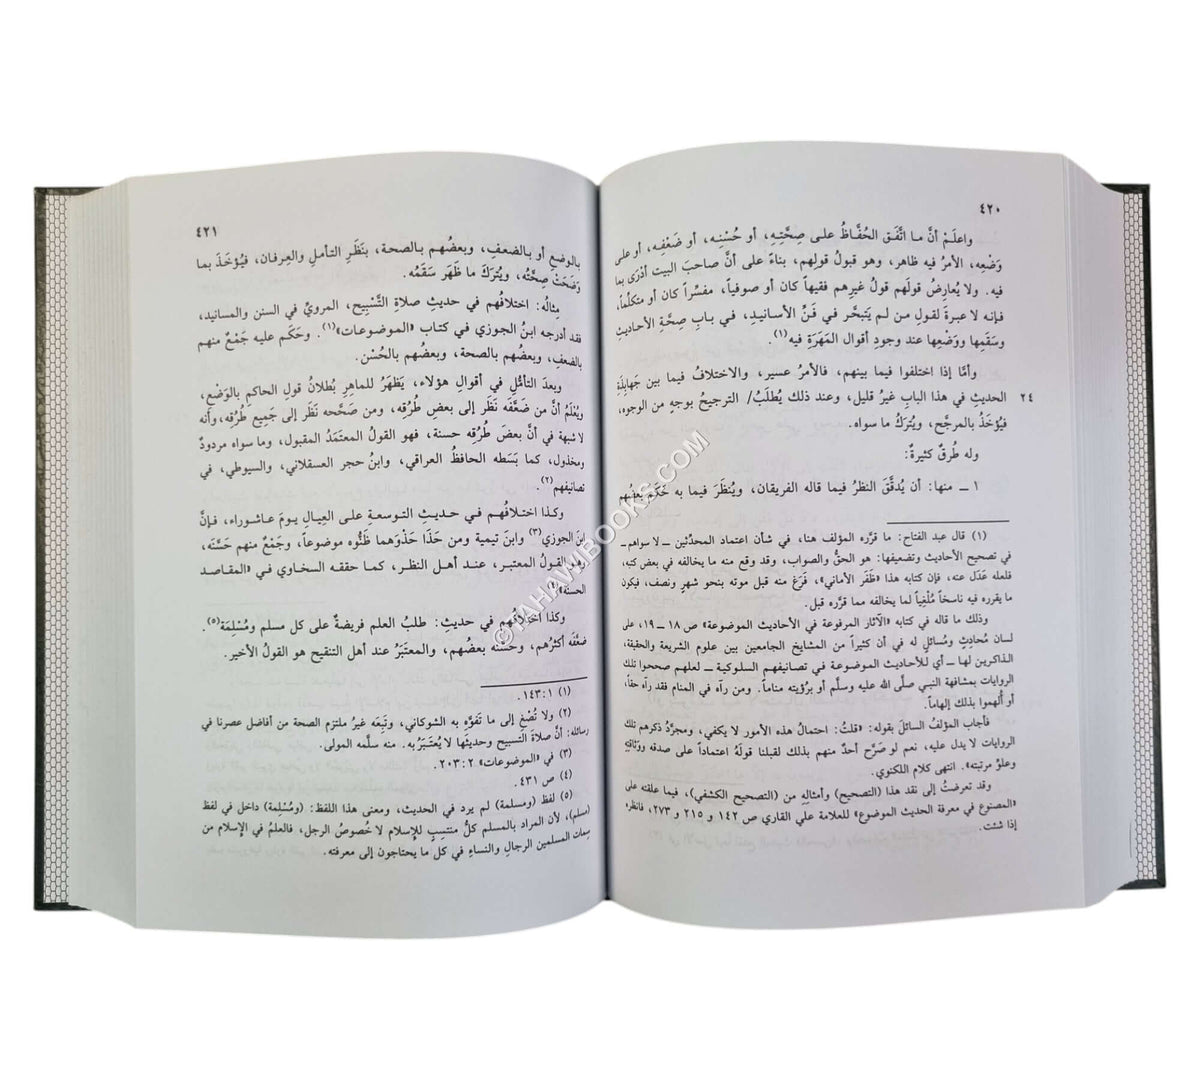 ٤٢٠
واعلَمْ أنَّ ما اتَّفَق الحُفَّاظُ على صِحَّتِه، أو حُسْنِه، أو ضَعْفِه، أو على
وَضْعِه، الأمرُ فيه ظاهر، وهو قبولُ قولِهم، بناءً على أنَّ صاحبَ البيت أَدْرَى بما
فيه. ولا يُعارِضُ قولَهم قولُ غيرِهم فقيهاً كان أو صوفياً، مفسِّراً كان أو متكلِّماً،
فإنه لا عبرةَ لقولِ من لم يَتبحَّر في فَنِّ الأسانيدِ، في بابِ صِحَّةِ الأحاديثِ
وسَقَمِها ووَضْعِها عند وجودِ أقوال المَهَرَةِ فيه(١).
وأمَّا إذا اختلفوا فيما بينهم، فالأمرُ عسير، والاختلافُ فيما بين جَهابِذَةِ
الحديثِ في هذا البابِ غيرُ قليل، وعند ذلك يُطلَبُ/ الترجيحُ بوجهٍ من الوجوه،
٢٤
فيُؤخَذُ بالمرجَّح، ويُترَكُ ما سواه.
وله طُرقٌ كثيرةٌ:
١ ــ منها: أن يُدقَّقَ النظرُ فيما قاله الفريقان، ويُنظَرَ فيما به حَكَم بعضُهم
(١) قال عبد الفتاح: ما قرَّره المؤلف هنا، في شأن اعتماد المحدِّثين ــ لا سواهم ــ
في تصحيح الأحاديث وتضعيفها: هو الحقُّ والصواب، وقد وقع منه ما يخالفه في بعض كتبه،
فلعله عَدَل عنه، فإن كتابه هذا «ظَفَر الأماني»، فَرَغ منه قبل موته بنحو شهرٍ ونصف، فيكون
ما يقرره فيه ناسخاً مُلْغِياً لما يخالفه مما قرَّره قبل.
وذلك ما قاله في كتابه «الآثار المرفوعة في الأحاديث الموضوعة» ص ١٨ ــ ١٩، على
لسان مُحادِثٍ ومُسائلٍ له في أن كثيراً من المشايخ الجامعين بين علوم الشريعة والحقيقة،
الذاكرين لها ــ أي للأحاديث الموضوعة في تصانيفهم السلوكية ــ لعلهم صححوا تلك
الروايات بمشافهة النبي صلَّى الله عليه وسلَّم أو برُؤيته مناماً. ومن رآه في المنام فقد رآه حقاً،
أو أُلهموا بذلك إلهاماً.
فأجاب المؤلفُ السائلَ بقوله: «قلتُ: احتمالُ هذه الأمور لا يكفي، ومجرَّدُ ذكرهم تلك
الروايات لا يدل عليه، نعم لو صَرَّح أحدٌ منهم بذلك لقبلنا قولَهُ اعتماداً على صدقه ووثاقتِه
وعلوِّ مرتبته». انتهى كلام اللكنوي.
وقد تعرضتُ إلى نقد هذا (التصحيح) وأمثالِهِ من (التصحيح الكشفي)، فيما علقته على
«المصنوع في معرفة الحديث الموضوع» للعلامة علي القاري ص ١٤٢ و ٢١٥ و ٢٧٣، فانظره
إذا شئت.
٤٢١
بالوضعِ أو بالضعفِ، وبعضُهم بالصحة، بنَظَرِ التأملِ والعِرفان، فيُؤخَذَ بما
وَضَحَتْ صِحَّتُه، ويُترَكَ ما ظَهَر سَقَمُه.
مِثالُه: اختلافُهم في حديثِ صلاةِ التَّسْبِيح، المرويِّ في السنن والمسانيد،
فقد أدرجه ابنُ الجوزي في كتاب «الموضوعات»(١). وحَكَم عليه جَمْعٌ منهم
بالضعفِ، وبعضُهم بالصحة، وبعضُهم بالحُسْن.
وبعدَ التأمُّل في أقوالِ هؤلاء، يَظهَرُ للماهرِ بُطلانُ قولِ الحاكم بالوَضْع،
ويُعْلَمُ أنَّ من ضَعَّفَه نَظَر إلى بعضِ طُرقِه، ومن صَحَّحه نَظَر إلى جَميعِ طُرقِه، وأنه
لا شبهة في أنَّ بعضَ طُرُقه حسنة، فهو القولُ المعتَمَدُ المقبول، وما سواه مردودٌ
ومخذول، كما بَسَطه الحافظُ العراقي، وابنُ حجر العسقلاني، والسيوطي، في
تصانيفهم(٢).
وكذا اختلافُهم في حديثِ التوسعةِ على العِيالِ يومَ عاشوراء، فإنَّ
ابنَ الجوزي(٣) وابنَ تيمية ومن حَذَا حَذْوَهما ظَنُّوه موضوعاً، وجَمْعٌ منهم حَسَّنَه،
وهو القولُ المعتبر، عند أهل النظر، كما حققه السخاوي في «المقاصد
الحسنة»(٤).
وكذا اختلافُهم في حديثِ: طلبُ العلم فريضةٌ على كل مسلم ومُسْلِمَة(٥).
ضعَّفَه أكثرُهم، وحَسَّنه بعضُهم، والمعتَبَرُ عند أهل التنقيح هو القولُ الأخير.
(١) ١٤٣:١.
(٢) ولا تُصْغِ إلى ما تَفَوَّه به الشوكاني، وتبِعَه غيرُ ملتزم الصحة من أفاضل عصرنا في
رسائله: أنَّ صلاةَ التسبيح وحديثَها لا يُعتَبَرُ به. منه سلَّمه المولى.
(٣) في «الموضوعات» ٢٠٣:٢.
(٤) ص ٤٣١.
(٥) لفظ (ومسلمة) لم يرد في الحديث، ومعنى هذا اللفظ: (ومُسْلِمة) داخل في لفظ
(مسلم)، لأن المراد بالمسلم كلُّ منتسِبٍ للإسلام لا خُصوصُ الرجل، فالعلمُ في الإسلام من
سِماتِ المسلمين الرجالِ والنساءِ في كل ما يحتاجون إلى معرفته.
© TAHAWIBOOKS.COM